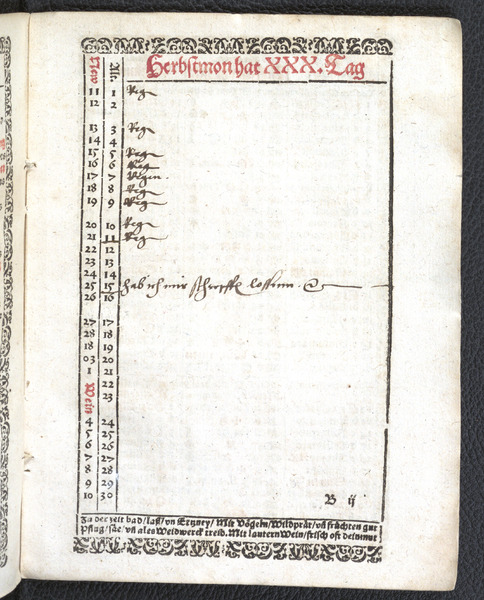 Herbstmon hat XXX. Tag
New Alt
11 1 Reg
12 2
13 3 Reg
14 4
15 5 Reg
16 6 Reg
17 7 Regen.
18 8 Reg
19 9 Reg
20 10 Reg
21 11 Reg
22 12
23 13
24 14
25 15 hab ich mir schrepffe lossenn.
26 16
27 17
28 18
18 19
03 20
1 21
Wein 22
23
4 24
5 25
6 26
7 27
8 28
9 29
10 30
B ij
In der zeit bad / laß / vñ Ertzney / Mit Vögeln / Wildprät / vñ früchten gut
Pflug / säe / vñ ales Weidwerck treib. Mit lautern Wein / frisch oft dein mut